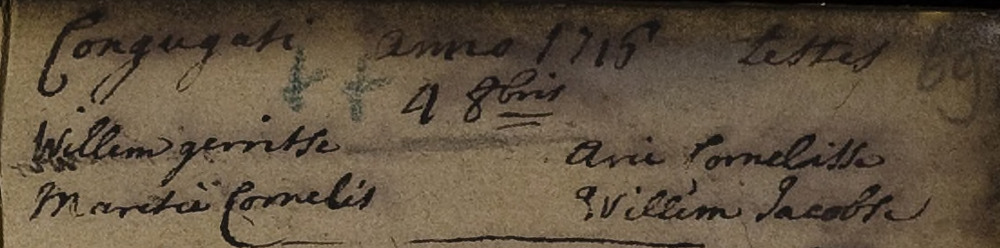 Conyugati anno 1716 testes 69
4 8bris
Willem gerritse Arie Cornelisse
Maretie Cornelis Willem Jacobse